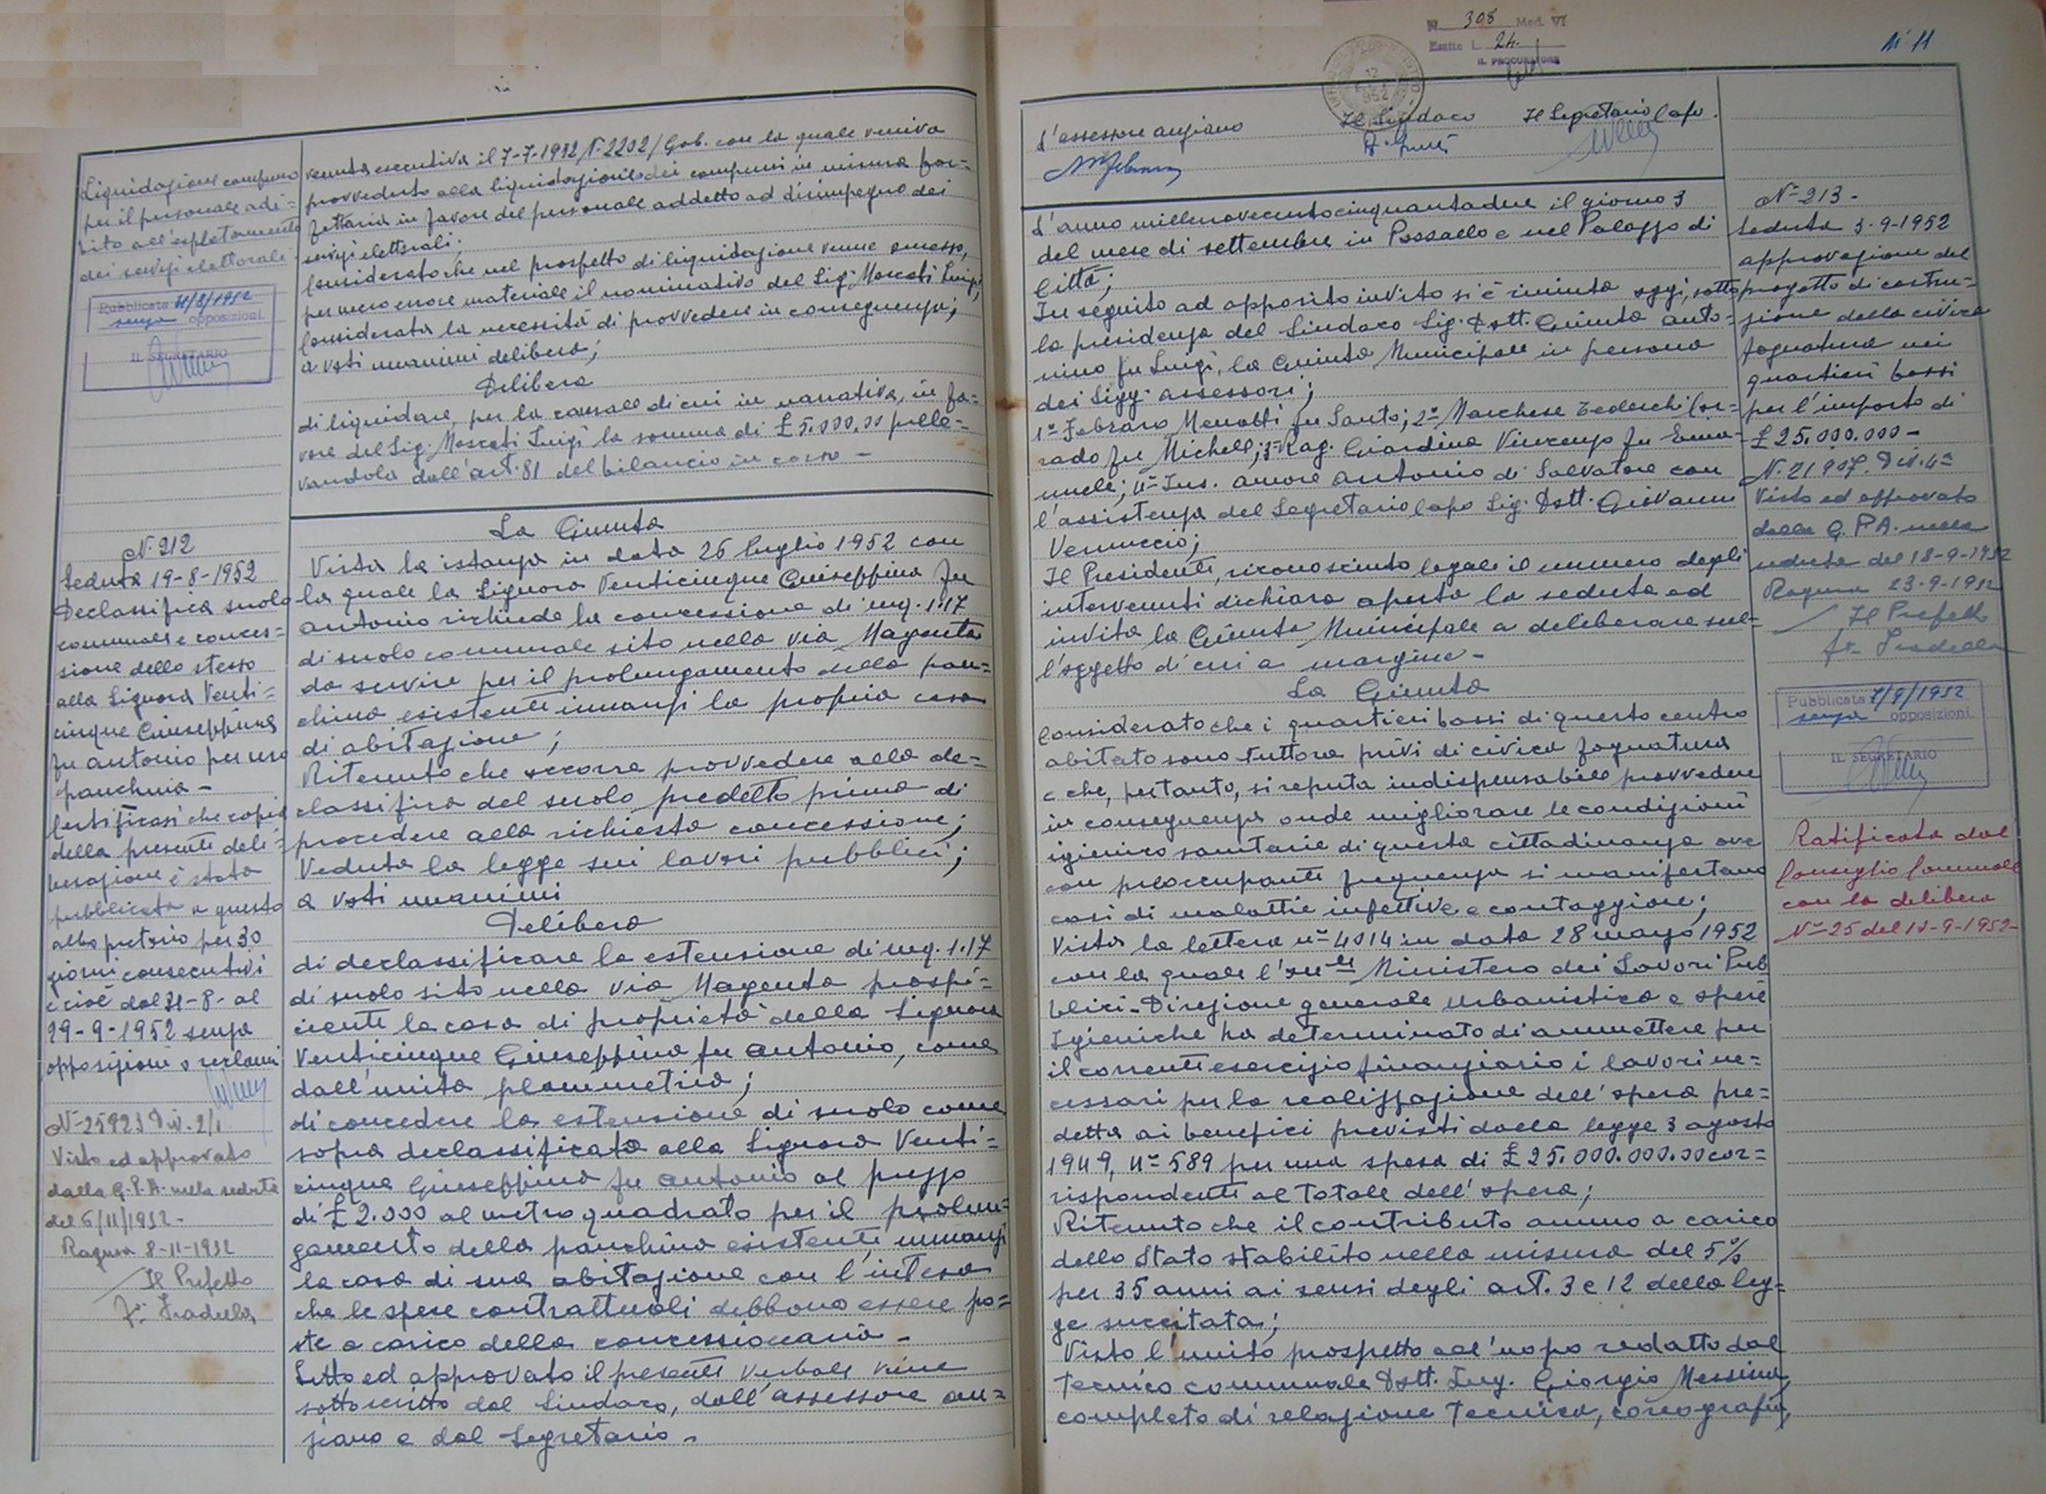 Liquidazione compenso
per il personale adi=
bito all'espletamento
dei servizi elettorali
Pubblicata 31/8/1952
senza opposizioni
IL SEGRETARIO
venuta esecutiva il 7-7-1952 N. 2202/Gab. con la quale veniva
provveduto alla liquidazione dei compensi in misura for=
fettaria in favore del personale addetto ad disimpegno dei
servizi elettorali;
Considerato che nel prospetto di liquidazione venne omesso,
per mero errore materiale il nominativo del Sig. Moscati Luigi;
Considerata la necessità di provvedere in conseguenza;
a voti unanimi delibera;
Delibera
di liquidare, per la causale di cui in narrativa, in fa=
vore del Sig. Moscati Luigi la somma di £ 5.000,00 prele=
vandola dall'art. 81 del bilancio in corso -
N. 212
Seduta 19-8-1952
Declassifica suolo
comunale e conces=
sione dello stesso
alla Signora Venti=
cinque Giuseppina
fu Antonio per uso
panchina -
Certificasi che copia
della presente deli=
berazione è stata
pubblicata a questo
albo pretorio per 30
giorni consecutivi
e cioè dal 31-8- al
29-9-1952 senza
opposizioni o reclami
N. 25923 Div. 2/1
Visto ed approvato
dalla G.P.A. nella seduta
del 6/11/1952 -
Ragusa 8-11-1952
Il Prefetto
La Giunta
Vista la istanza in data 26 luglio 1952 con
la quale la Signora Venticinque Giuseppina fu
Antonio richiede la concessione di mq. 1.17
di suolo comunale sito nella via Magenta
da servire per il prolungamento della pan=
china esistente innanzi la propria casa
di abitazione;
Ritenuto che occorre provvedere alla de=
classifica del suolo predetto prima di
procedere alla richiesta concessione;
Veduta la legge sui lavori pubblici;
a voti unanimi
Delibera
di declassificare la estensione di mq. 1.17
di suolo sito nella via Magenta prospi=
ciente la casa di proprietà della Signora
Venticinque Giuseppina fu Antonio, come
dall'unita planimetria;
di concedere la estensione di suolo come
sopra declassificata alla Signora Venti=
cinque Giuseppina fu Antonio al prezzo
di £ 2.000 al metro quadrato per il prolun=
gamento della panchina esistente innanzi
la casa di sua abitazione con l'intesa
che le spese contrattuali debbono essere po=
ste a carico della concessionaria -
Letto ed approvato il presente verbale viene
sottoscritto dal Sindaco, dall'assessore an=
ziano e dal Segretario -
N. 308 Mod. VI
Esatte L. 24.
IL PROCURATORE
N. 11
L'assessore anziano Il Sindaco Il Segretario Capo.
L'anno millenovecentocinquantadue il giorno 3
del mese di settembre in Pozzallo e nel Palazzo di
Città;
In seguito ad apposito invito si è riunita oggi, sotto
la presidenza del Sindaco Sig. Dott. Giunta Anto=
nino fu Luigi, la Giunta Municipale in persona
dei Sigg. assessori;
1° Febraro Menotti fu Santo; 2° Marchese Tedeschi Cor=
rado fu Michele; 3° Rag. Giardina Vincenzo fu Ema=
nuele; 4° Ins. Amore Antonio di Salvatore con
l'assistenza del Segretario Capo Sig. Dott. Giovanni
Vernuccio;
Il Presidente, riconosciuto legale il numero degli
intervenuti dichiara aperta la seduta ed
invita la Giunta Municipale a deliberare sul=
l'oggetto di cui a margine -
La Giunta
Considerato che i quartieri bassi di questo centro
abitato sono tuttora privi di civica fognatura
e che, pertanto, si reputa indispensabile provvedere
in conseguenza onde migliorare le condizioni
igienico sanitarie di questa cittadinanza ove
con preoccupante frequenza si manifestano
casi di malattie infettive e contaggiose;
Vista la lettera n° 4014 in data 28 marzo 1952
con la quale l'on.le Ministero dei Lavori Pub
blici - Direzione generale urbanistica e opere
Igieniche ha determinato di ammettere per
il corrente esercizio finanziario i lavori ne=
cessari per la realizzazione dell'opera pre=
detta ai benefici previsti dalla legge 3 agosto
1949, n° 589 per una spesa di £ 25.000.000.00 cor=
rispondente al totale dell'opera;
Ritenuto che il contributo annuo a carico
dello Stato stabilito nella misura del 5%
per 35 anni ai sensi degli art. 3 e 12 della leg=
ge succitata;
Visto l'unito prospetto all'uopo redatto dal
tecnico comunale Dott. Ing. Giorgio Messina,
completo di relazione tecnica, corografia,
N° 213 -
Seduta 3-9-1952
approvazione del
progetto di costru=
zione della civica
fognatura nei
quartieri bassi
per l'importo di
£ 25.000.000 -
N. 21907. Div. 4a
Visto ed approvato
dalla G.P.A. nella
seduta del 18-9-1952
Ragusa 23-9-1952
Il Prefetto
Pubblicata 7/9/1952
senza opposizioni
IL SEGRETARIO
Ratificata dal
Consiglio Comunale
con la delibera
N° 25 del 14-9-1952 -